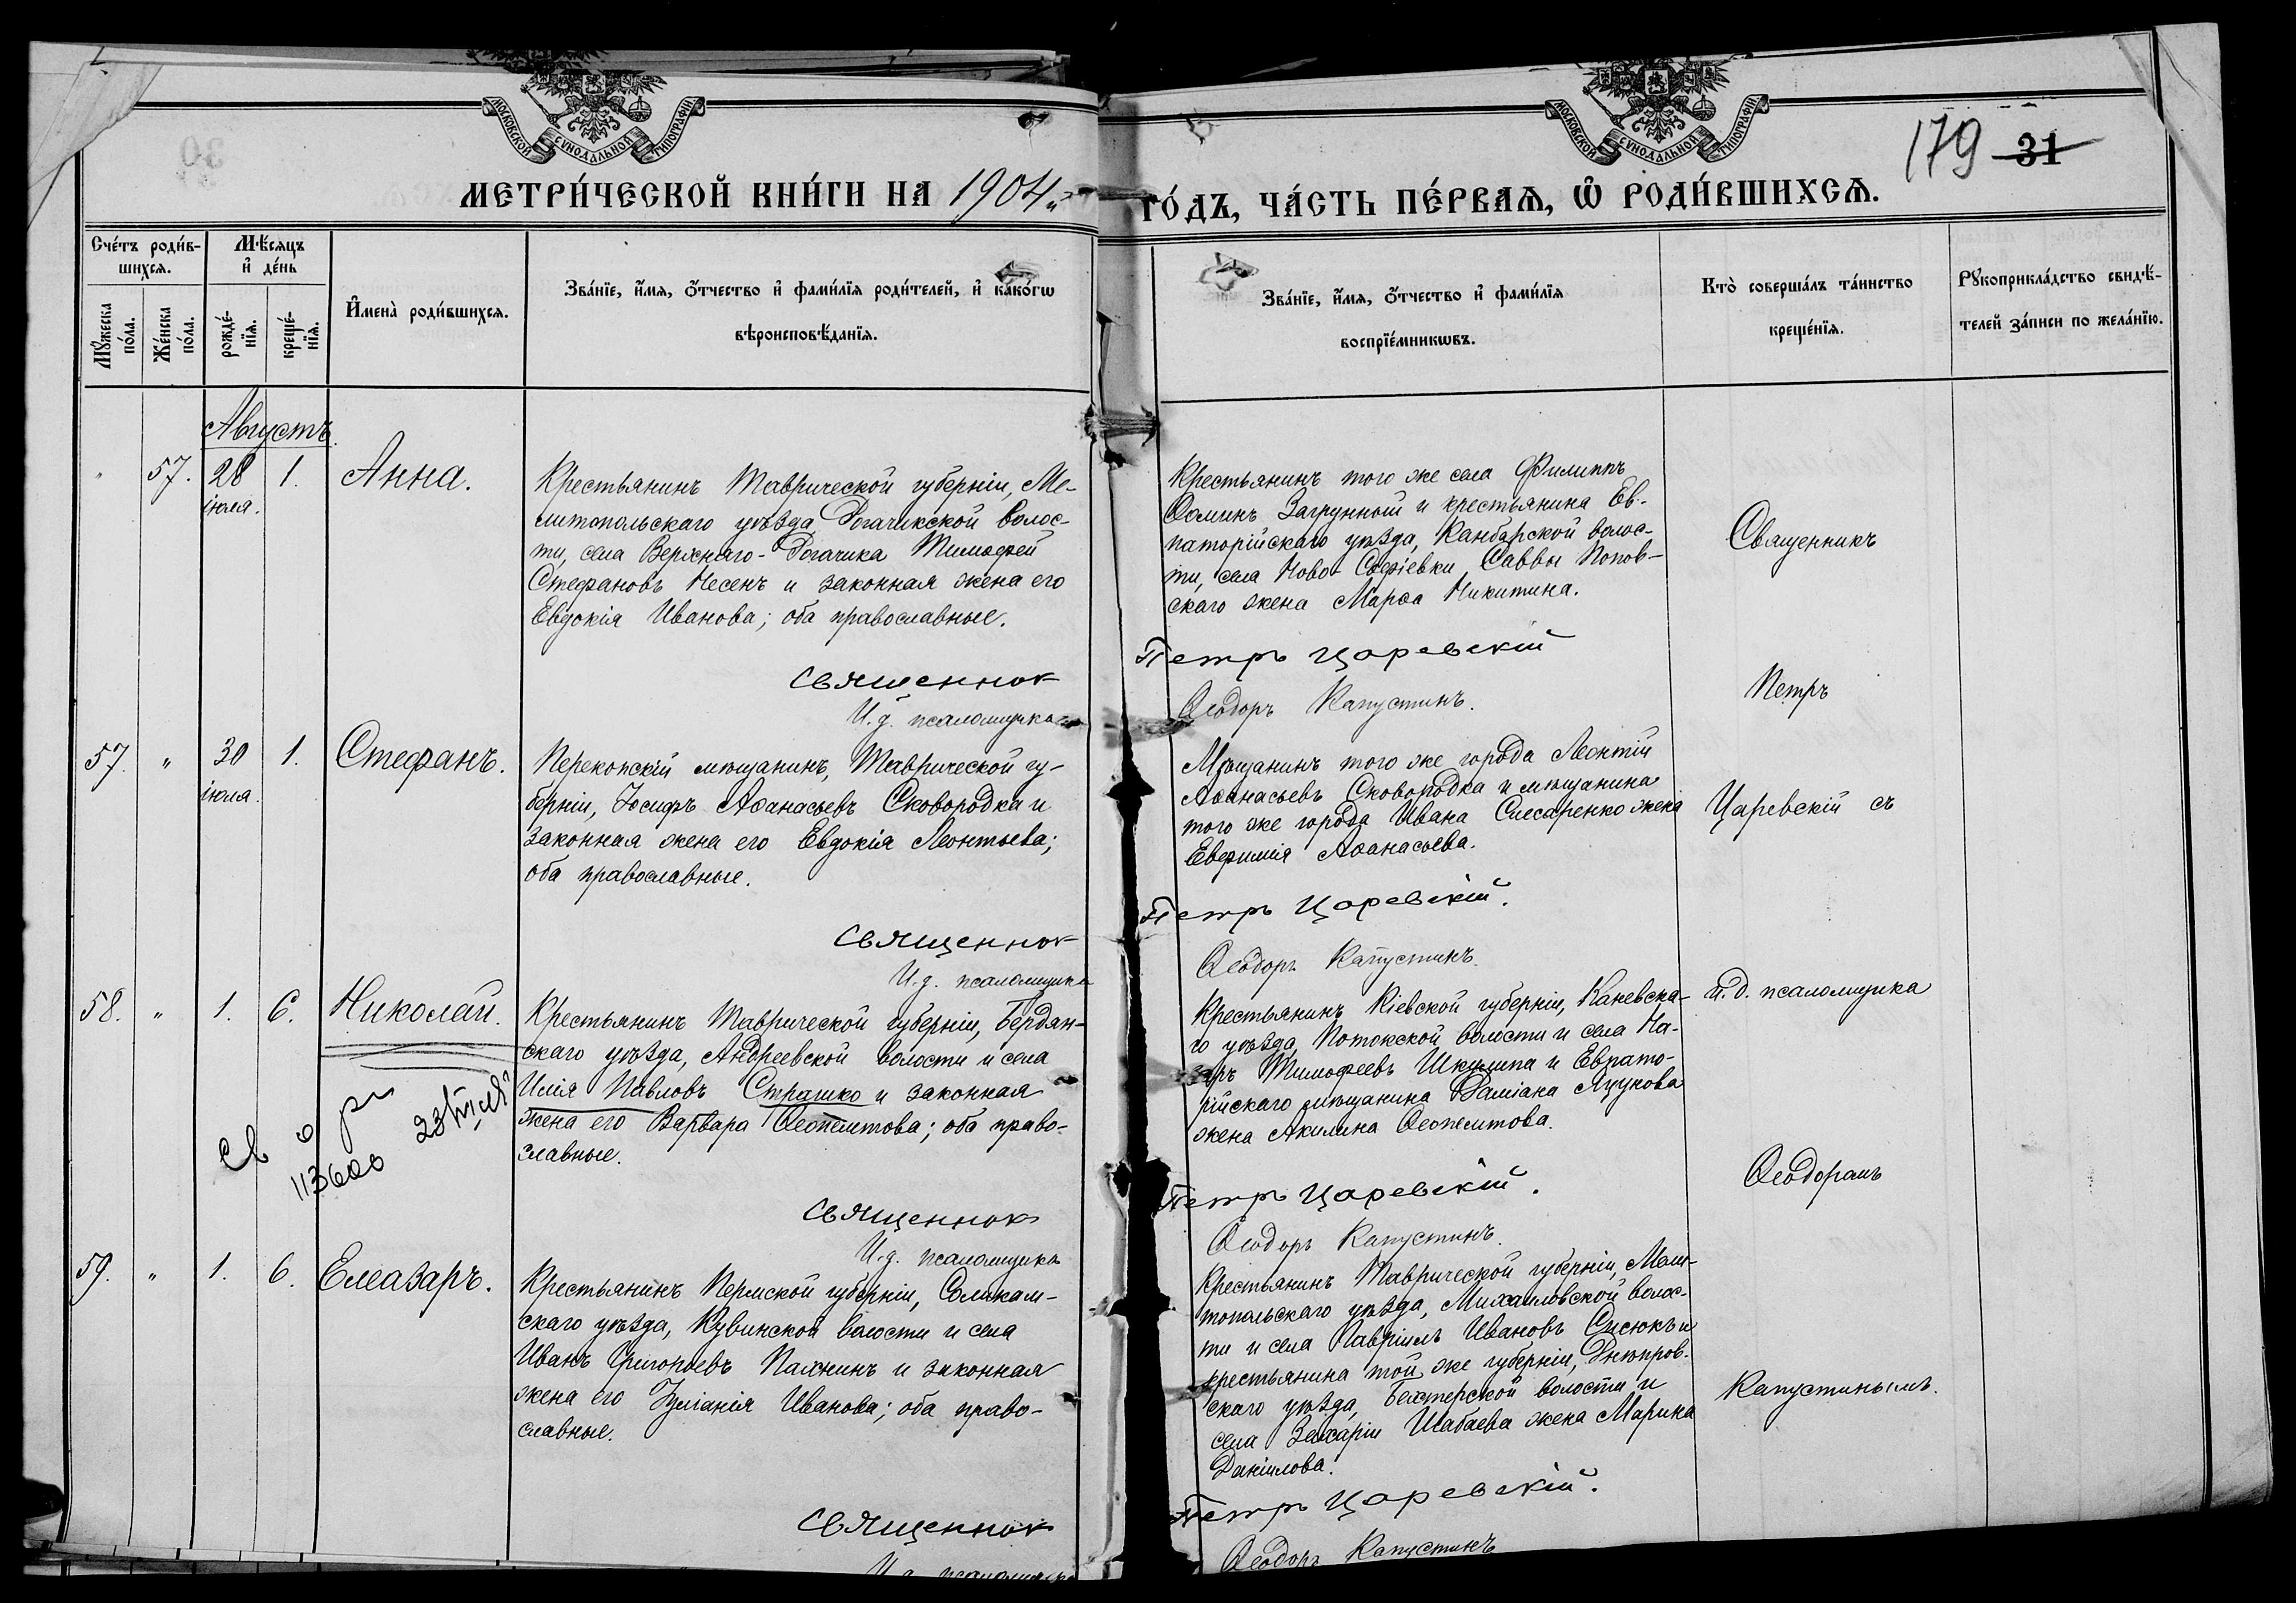 МОСКОВСКОЙ СУНОДАЛЬНОЙ ТИПОГРАФІИ
МОСКОВСКОЙ СУНОДАЛЬНОЙ ТИПОГРАФІИ
179 31
МЕТРИ́ЧЕСКОЙ КНИ́ГИ НА 1904
ГО́ДЪ, ЧА́СТЬ ПЕ́РВАѦ, Ѡ҆ РОДИ́ВШИХСѦ.
Сче́тъ роди́в-
шихсѧ.
Мѣ́сѧцъ
и҆ де́нь
Мꙋ́жеска
по́ла.
Же́нска
по́ла.
рожде́-
нїѧ.
креще́-
нїѧ.
И҆мена̀ роди́вшихсѧ.
Зва́нїе, и҆́мѧ, ѻ҆́тчество и҆ фами́лїѧ роди́телей, и҆ како́гѡ
вѣроисповѣ́данїѧ.
Зва́нїе, и҆́мѧ, ѻ҆́тчество и҆ фами́лїѧ
воспрїе́мникѡвъ.
Кто̀ соверша́лъ та́инство
креще́нїѧ.
Рꙋкоприкла́дство свидѣ́-
телей за́писи по жела́нїю.
Августъ.
" 57. 28 1. Анна.
іюля.
Крестьянинъ Таврической губерніи, Ме-
литопольскаго уѣзда Рогачикской волос-
ти, села Верхняго-Рогачика Тимофей
Стефановъ Несенъ и законная жена его
Евдокія Иванова; оба православные.
Крестьянинъ того же села Филиппъ
Ѳоминъ Загрунный и крестьянина Ев-
паторійскаго уѣзда, Канбарской волос-
ти, села Ново-Софіевки Саввы Попов-
скаго жена Марѳа Никитина.
Священникъ
Священник
Петръ Царевскій
И. д. псаломщика
Ѳеодоръ Капустинъ.
Петръ
57. " 30 1. Стефанъ.
іюля.
Перекопскій мѣщанинъ, Таврической гу-
берніи, Іосифъ Аѳанасьевъ Сковородка и
законная жена его Евдокія Леонтьева;
оба православные.
Мѣщанинъ того же города Леонтій
Аѳанасьевъ Сковородка и мѣщанина
того же города Ивана Слесаренко жена
Евфимія Аѳанасьева.
Царевскій съ
Священник
Петръ Царевскій.
И. д. псаломщика
Ѳеодоръ Капустинъ.
58. " 1. 6. Николай.
Крестьянинъ Таврической губерніи, Бердян-
скаго уѣзда, Андреевской волости и села
Илія Павловъ Страшко и законная
жена его Варвара Ѳеопемптова; оба право-
славные.
113600
Крестьянинъ Кіевской губерніи, Каневска-
го уѣзда Потокской волости и села На-
заръ Тимофеевъ Шкилипа и Евпато-
рійскаго мѣщанина Даміана Яцунова
жена Акилина Ѳеопемптова.
и. д. псаломщика
Ѳеодоромъ
Священник
Петръ Царевскій.
И. д. псаломщика
Ѳеодоръ Капустинъ.
59. " 1. 6. Елеазаръ.
Крестьянинъ Пермской губерніи, Соликам-
скаго уѣзда, Кувинской волости и села
Иванъ Григорьевъ Пахнинъ и законная
жена его Іуліанія Иванова; оба право-
славные.
Крестьянинъ Таврической губерніи, Мели-
топольскаго уѣзда, Михаиловской волос-
ти и села Гавріилъ Ивановъ Сисюкъ и
крестьянина той же губерніи, Днѣпров-
скаго уѣзда, Бехтерской волости и
села Захаріи Шабаева жена Марина
Даніилова.
Капустинымъ.
Священник
Петръ Царевскій.
И. д. псаломщика
Ѳеодоръ Капустинъ